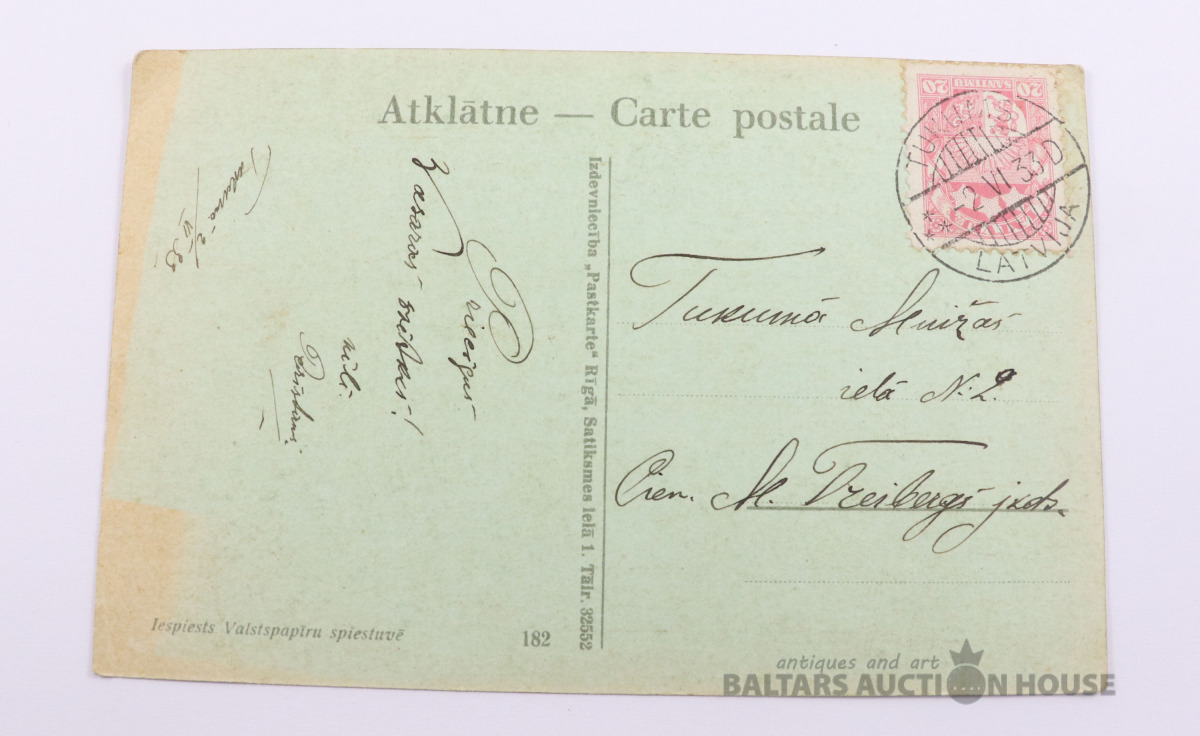 Atklātne — Carte postale
20 SANTIMU 20
TUKUMS
-2 VI 33 D
LATVIJA
Tukumā
2/VI 33
Priecīgus
Vasaras svētkus!
vēlē
Tukumā Muižas
ielā N. 2.
Cien. M. Freibergs jkdz.
Izdevniecība „Pastkarte" Rīgā, Satiksmes ielā 1. Tālr. 32552
Iespiests Valstspapīru spiestuvē
182
antiques and art
BALTARS AUCTION HOUSE